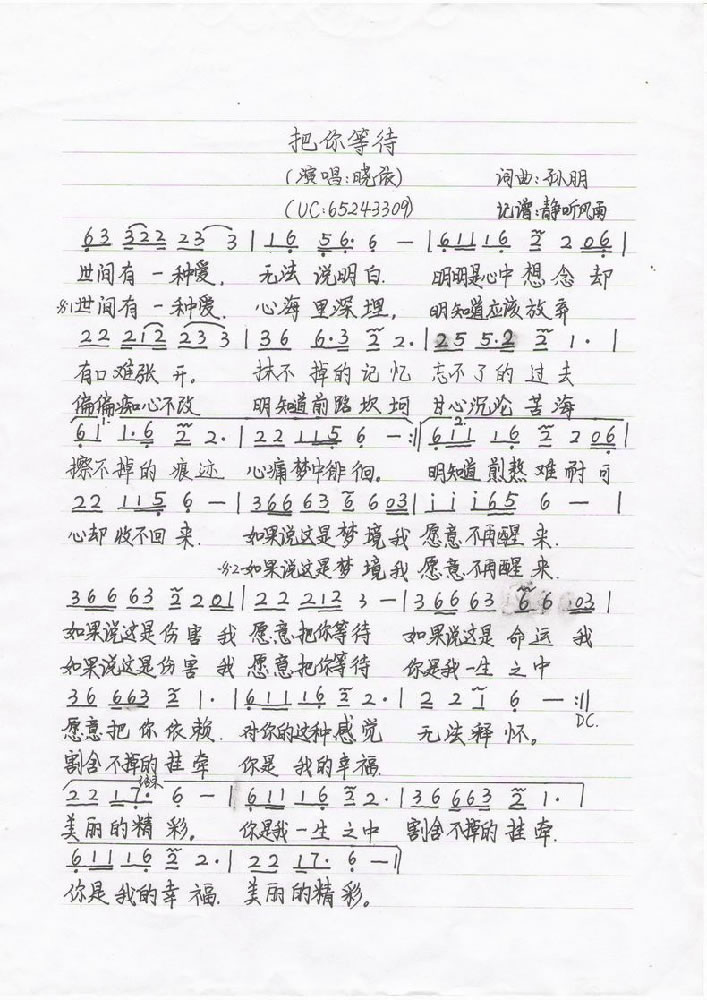 把你等待
(演唱:晓依) 词曲:孙朋
(UC:65243309) 记谱:静听风雨
63 322 23 3 | 16 56· 6 — | 61116 2 2 06 |
世间有一种爱, 无法说明白. 明明是心中想念却
%1世间有一种爱. 心海里深理, 明知道应该放弃
22 212 23 3 | 36 6·3 2 2· | 25 5·2 2 1· |
有口难张开. 抹不掉的记忆 忘不了的过去
偏偏痴心不改 明知道前路坎坷 甘心沉沦苦海
61 1·6 2 2· | 22 115 6 — :|| 611 16 2 2 06 |
擦不掉的痕迹 心痛梦中徘徊. 明知道煎熬难耐可
22 115 6 — | 366 63 6 6 03 | i i i65 6 — |
心却收不回来. 如果说这是梦境我愿意不再醒来.
%2如果说这是梦境我愿意不再醒来.
366 63 2 2 01 | 22 212 3 — | 366 63 6 6 03 |
如果说这是伤害我愿意把你等待 如果说这是命运我
如果说这是伤害我愿意把你等待 你是我一生之中
36 663 2 1· | 611 16 2 2· | 2 2 1 6 — :||
D.C.
愿意把你依赖. 对你的这种感觉 无法释怀。
割舍不掉的挂牵 你是我的幸福.
结束
22 17· 6 — | 611 16 2 2· | 36 663 2 1· |
美丽的精彩, 你是我一生之中 割舍不掉的挂牵.
611 16 2 2· | 22 17· 6 — ||
你是我的幸福. 美丽的精彩。